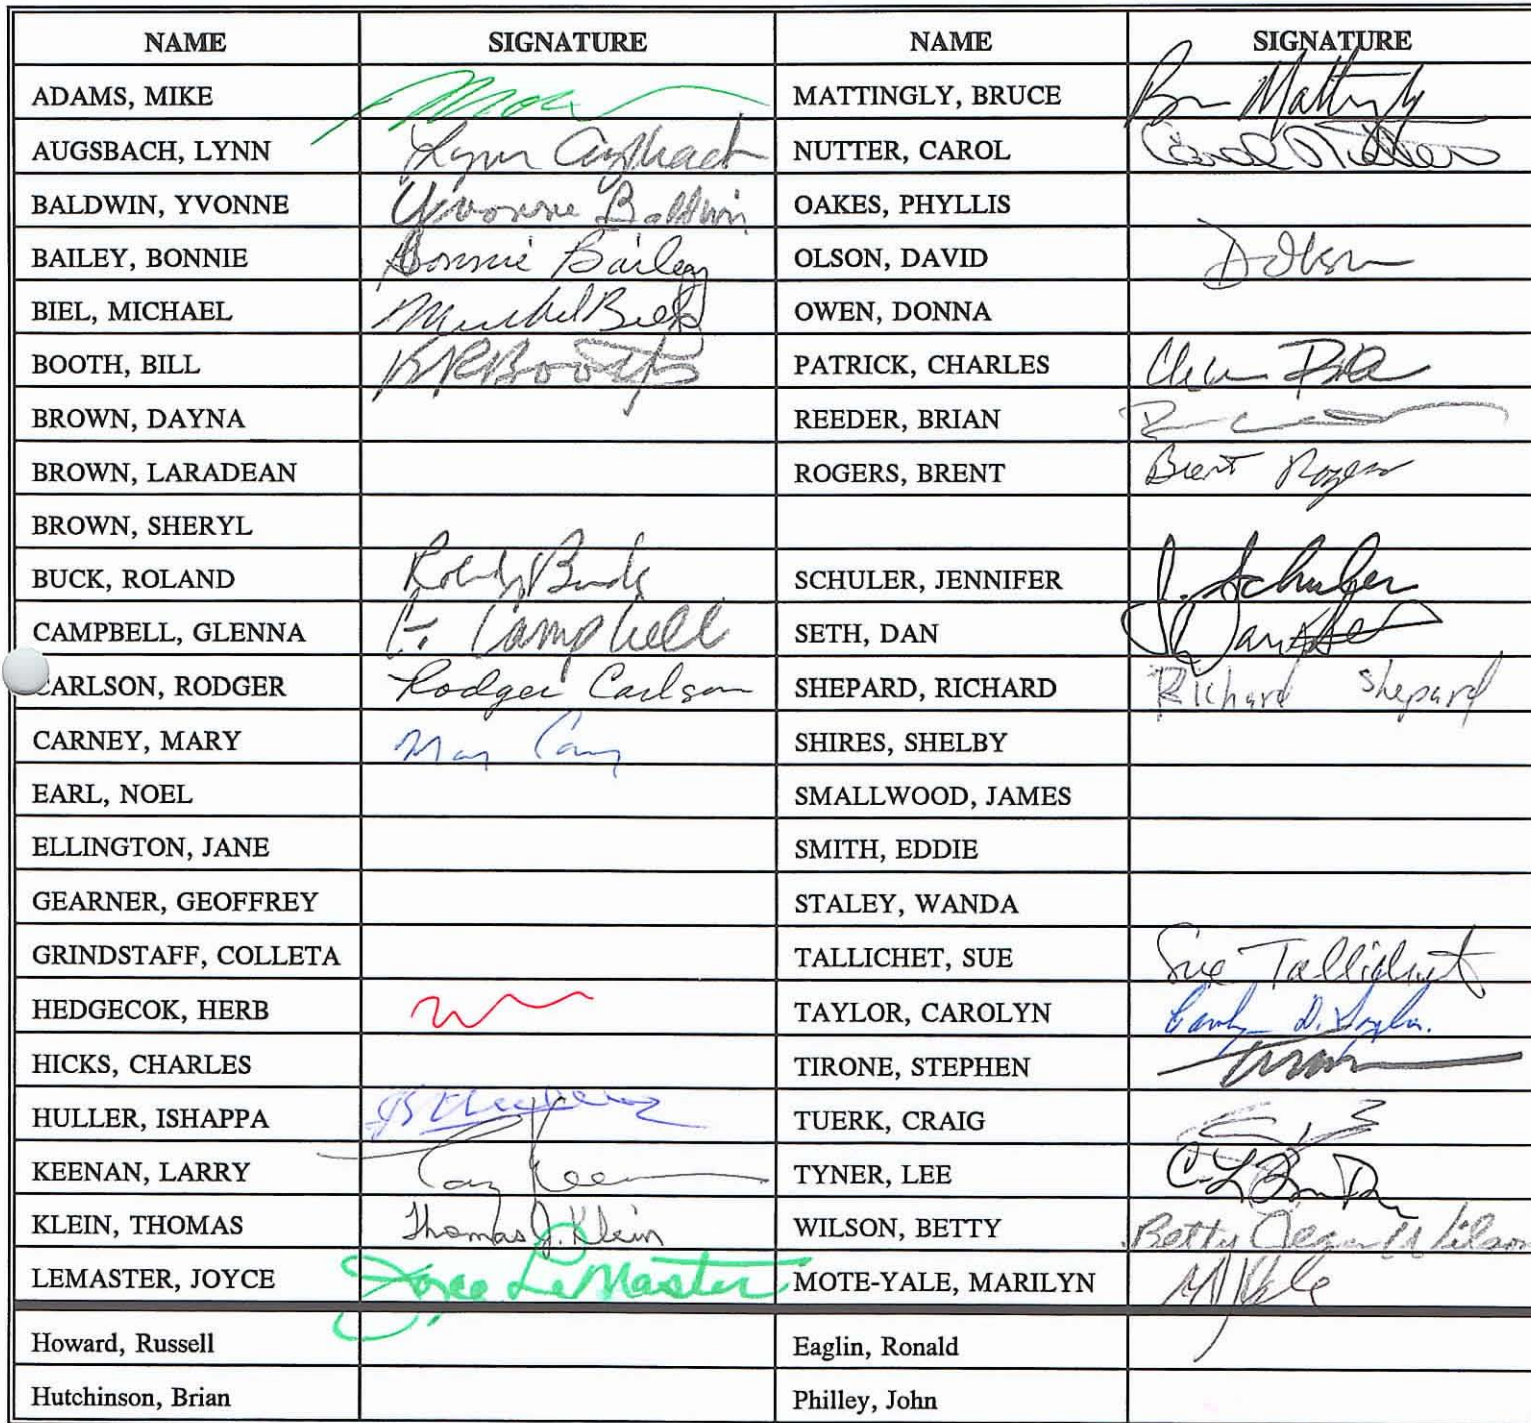 NAME SIGNATURE NAME SIGNATURE
ADAMS, MIKE MATTINGLY, BRUCE Mattingly
AUGSBACH, LYNN Lynn Augsbach NUTTER, CAROL Carol Nutter
BALDWIN, YVONNE Yvonne Baldwin OAKES, PHYLLIS
BAILEY, BONNIE Bonnie Bailey OLSON, DAVID D Olson
BIEL, MICHAEL Michael Biel OWEN, DONNA
BOOTH, BILL Booth PATRICK, CHARLES
BROWN, DAYNA REEDER, BRIAN
BROWN, LARADEAN ROGERS, BRENT Brent Rogers
BROWN, SHERYL
BUCK, ROLAND SCHULER, JENNIFER J. Schuler
CAMPBELL, GLENNA G. Campbell SETH, DAN Dan Seth
CARLSON, RODGER Rodger Carlson SHEPARD, RICHARD Richard Shepard
CARNEY, MARY SHIRES, SHELBY
EARL, NOEL SMALLWOOD, JAMES
ELLINGTON, JANE SMITH, EDDIE
GEARNER, GEOFFREY STALEY, WANDA
GRINDSTAFF, COLLETA TALLICHET, SUE Sue Tallichet
HEDGECOK, HERB TAYLOR, CAROLYN Carolyn D. Taylor
HICKS, CHARLES TIRONE, STEPHEN
HULLER, ISHAPPA TUERK, CRAIG
KEENAN, LARRY TYNER, LEE
KLEIN, THOMAS Thomas J. Klein WILSON, BETTY Betty Wilson
LEMASTER, JOYCE Joyce LeMaster MOTE-YALE, MARILYN M Yale
Howard, Russell Eaglin, Ronald
Hutchinson, Brian Philley, John